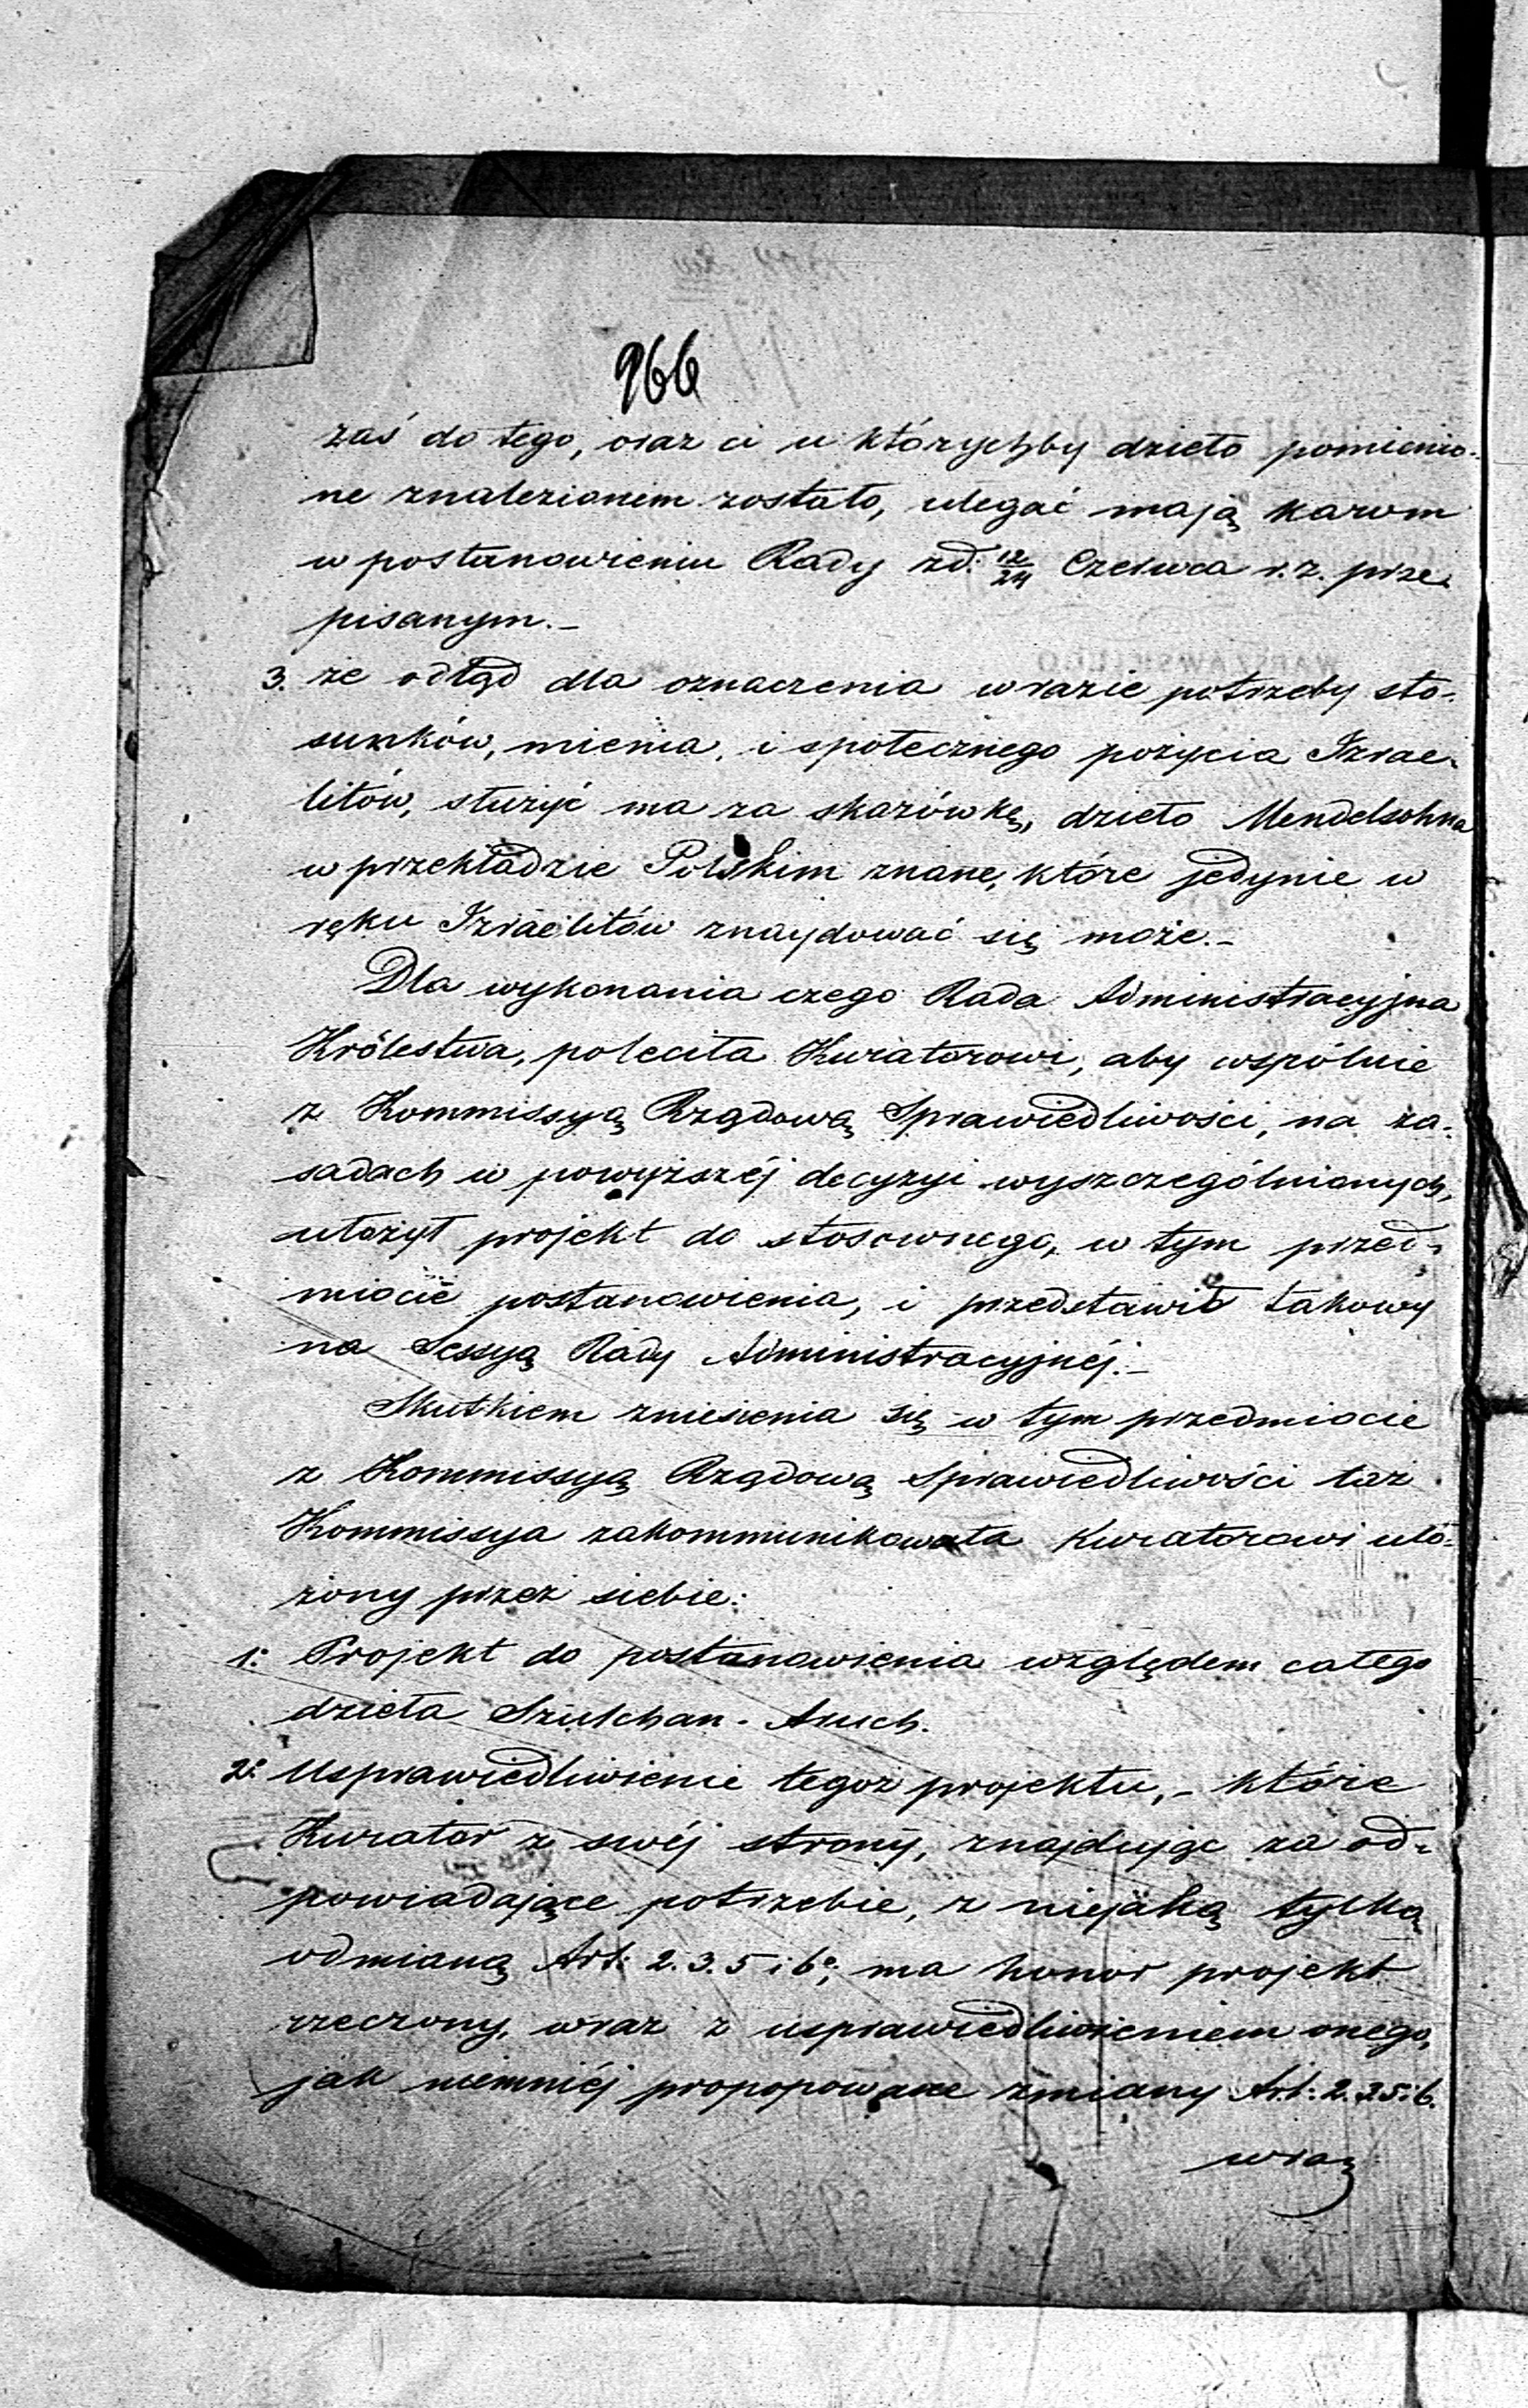 966
zaś do tego, oraz ci u którychby dzieło pomienio-
ne znalezionem zostało, ulegać mają karom
w postanowieniu Rady z d. 12/24 Czerwca r. z. prze-
pisanym.-
3. że odtąd dla oznaczenia w razie potrzeby sto-
sunków, mienia, i społecznego pożycia Izrae-
litów, służyć ma za skazówkę, dzieło Mendelsohna
w przekładzie Polskim znane, które jedynie w
ręku Izraelitów znajdować się może.-
Dla wykonania czego Rada Administracyjna
Królestwa, poleciła Kuratorowi, aby wspólnie
z Kommissyą Rządową Sprawiedliwości, na za-
sadach w powyższéj decyzyi wyszczególnionych,
ułożył projekt do stosownego, w tym przed-
miocie postanowienia, i przedstawił takowy
na Sessyą Rady Administracyjnéj.-
Skutkiem zniesienia się w tym przedmiocie
z Kommissyą Rządową Sprawiedliwości taż
Kommissya zakommunikowała Kuratorowi uło-
żony przez siebie:
1: Projekt do postanowienia względem całego
dzieła Szulchan-Aruch.
2: Usprawiedliwienie tegoż projektu,- które
Kurator z swéj strony, znajdując za od-
powiadające potrzebie, z niejaką tylko
odmianą Art: 2. 3. 5 i 6º, ma honor projekt
rzeczony, wraz z usprawiedliwieniem onego,
jak niemniéj propopowane zmiany Art: 2. 3.5 i 6.
wraz